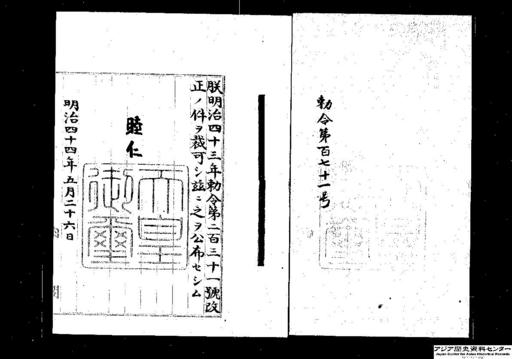 勅令第百七十一号
朕明治四十三年勅令第二百三十一號改
正ノ件ヲ裁可シ茲ニ之ヲ公布セシム
睦仁
天皇
御璽
明治四十四年五月二十六日
アジア歴史資料センター
Japan Center for Asian Historical Records